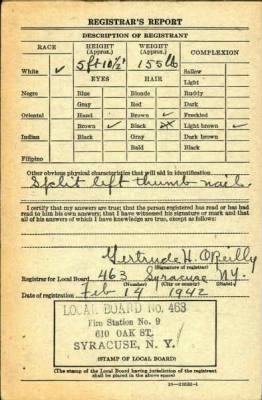 REGISTRAR'S REPORT
DESCRIPTION OF REGISTRANT
RACE HEIGHT (Approx.) WEIGHT (Approx.) COMPLEXION
5 ft 10½" 155 lb
White ✓ Sallow
EYES HAIR Light
Negro Blue Blonde Ruddy
Gray Red Dark
Oriental Hazel Brown ✓ Freckled
Brown ✓ Black Light brown ✓
Indian Black Gray Dark brown
Bald Black
Filipino
Other obvious physical characteristics that will aid in identification
Split left thumb nail.
I certify that my answers are true; that the person registered has read or has had
read to him his own answers; that I have witnessed his signature or mark and that
all of his answers of which I have knowledge are true, except as follows:
Gertrude H. O'Reilly
(Signature of registrar)
Registrar for Local Board 463 Syracuse N.Y.
(Number) (City or county) (State)
Date of registration Feb 14 1942
LOCAL BOARD NO. 463
Fire Station No. 9
610 OAK ST.
SYRACUSE, N. Y.
(STAMP OF LOCAL BOARD)
(The stamp of the Local Board having jurisdiction of the registrant
shall be placed in the above space)